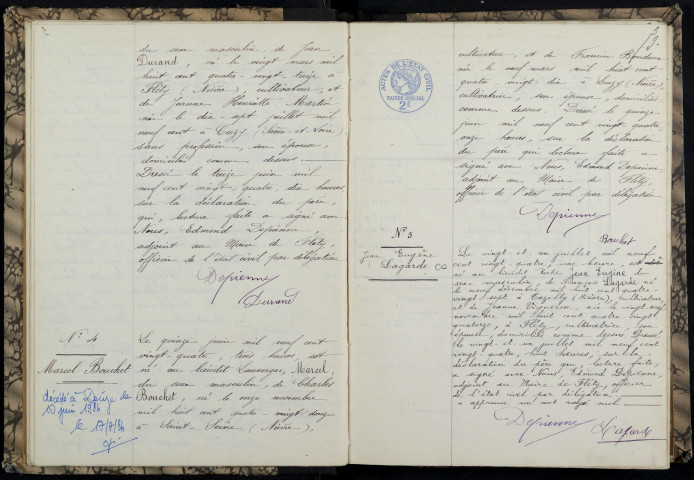 du sexe masculin, de Jean
Durand, né le vingt mars mil
huit cent quatre-vingt-treize à
Fléty (Nièvre) cultivateur, et
de Jeanne Henriette Martin
née le dix-sept juillet mil
neuf cent à Cuzy (Saône et Loire),
sans profession, son épouse,
domiciliés comme dessus.
Dressé le treize juin mil
neuf cent vingt-quatre, dix heures,
sur la déclaration du père,
qui, lecture faite a signé avec
Nous, Edmond Depienne,
adjoint au Maire de Fléty,
officier de l'état civil par délégation
Depienne
Durand
N° 4
Marcel Bouchet
décédé à Decize le
10 juin 1984
le 17/7/84
Le quinze juin mil neuf cent
vingt-quatre, trois heures, est
né au lieudit Marcel,
du sexe masculin, de Charles
Bouchet, né le onze novembre
mil huit cent quatre-vingt-douze
à Saint-Seine (Nièvre),
ACTES DE L'ETAT CIVIL
PAPIER SPECIAL
2F
cultivateur, et de Francine
née le neuf mars mil huit cent
quatre-vingt-dix à Luzy (Nièvre),
cultivatrice, son épouse, domiciliés
comme dessus. Dressé le quinze
juin mil neuf cent vingt quatre,
onze heures, sur la déclaration
du père qui lecture faite a
signé avec Nous, Edmond Depienne,
adjoint au Maire de Fléty,
officier de l'état civil par délégation
Depienne
Bouchet
N° 5
Jean Eugène
Lagarde
Le vingt et un juillet mil neuf
cent vingt quatre, une heure, est
né au lieudit Jean Eugène du
sexe masculin, de François Lagarde né
le neuf décembre mil huit cent quatre-
vingt sept à (Nièvre), cultivateur,
et de Jeanne Vigneron, née le vingt neuf
novembre mil huit cent quatre vingt
quatorze, à Fléty, cultivatrice, son
épouse, domiciliés comme dessus. Dressé
le vingt et un juillet mil neuf cent
vingt-quatre, huit heures, sur la
déclaration du père qui, lecture faite,
a signé avec Nous Edmond Depienne,
adjoint au Maire de Fléty, officier
de l'état civil par délégation
a approuvé un mot rayé nul
Depienne
Lagarde